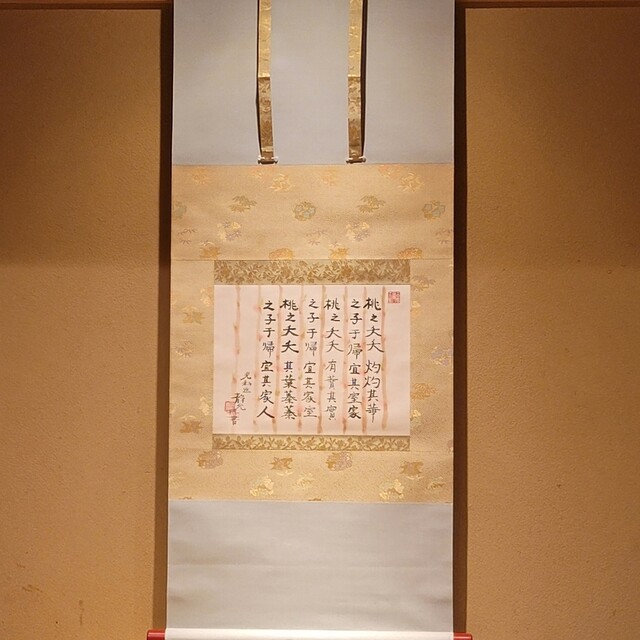 桃之夭夭 灼灼其華
之子于帰 宜其室家
桃之夭夭 有蕡其實
之子于帰 宜其家室
桃之夭夭 其葉蓁蓁
之子于帰 宜其家人